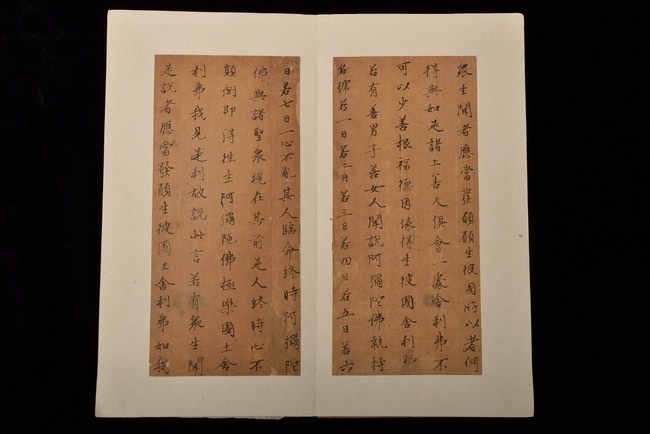 衆生聞者應當發願願生彼國所以者何
得與如是諸上善人俱會一處舍利弗不
可以少善根福德因緣得生彼國舍利弗
若有善男子善女人聞說阿彌陀佛執持
名號若一日若二日若三日若四日若五日若六
日若七日一心不亂其人臨命終時阿彌陀
佛與諸聖衆現在其前是人終時心不
顛倒即得往生阿彌陀佛極樂國土舍
利弗我見是利故說此言若有衆生聞
是說者應當發願生彼國土舍利弗如我